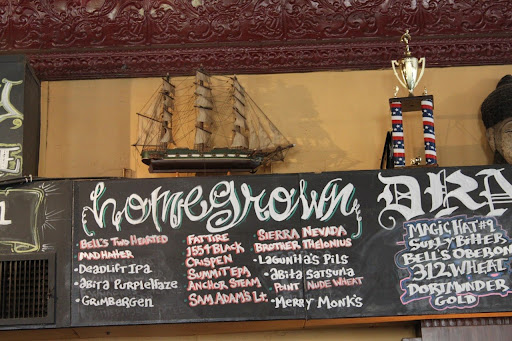 homegrown
• Bell's Two Hearted
Mad Hatter
• Deadlift Ipa
• abita PurpleHaze
• Grimbergen
Fat Tire
1554 Black
Crispen
Summit EPA
Anchor Steam
Sam Adam's Lt.
• Sierra Nevada
Brother Thelonius
• Lagunita's Pils
• abita Satsuma
Point Nude Wheat
• Merry Monk's
DRA
Magic Hat #9
Surly Bitter
Bell's Oberon
312 Wheat
Dortmunder
Gold